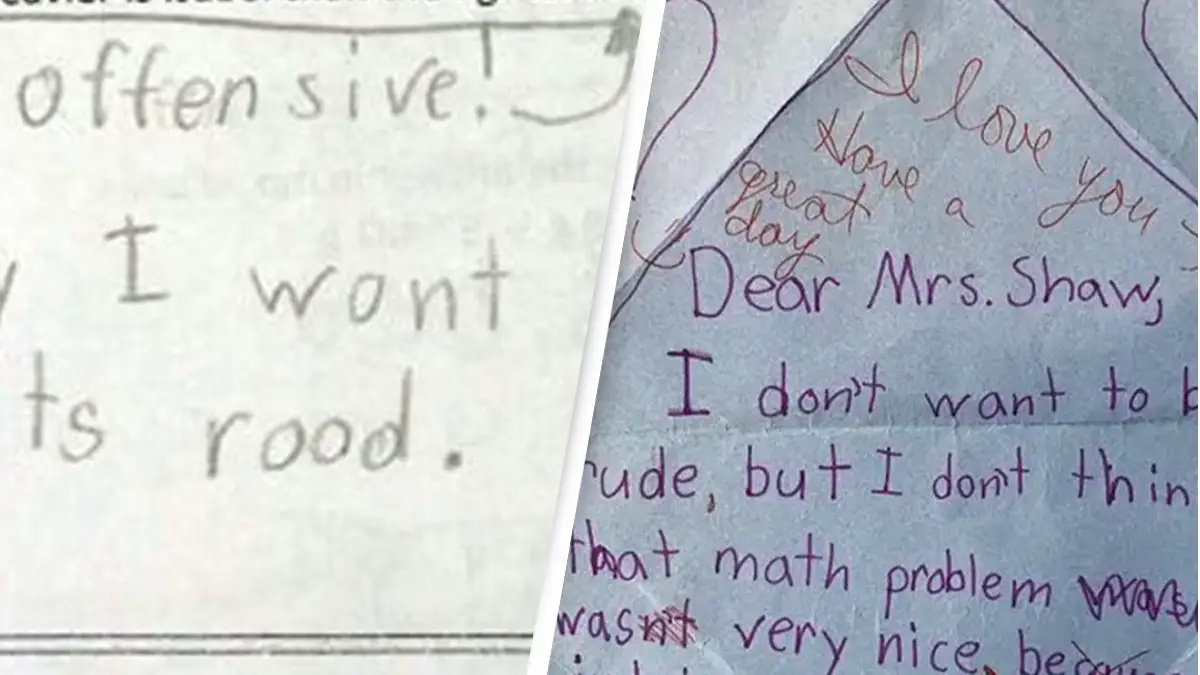 offensive!
I wont
ts rood.
I love you
Have a
great
day
Dear Mrs. Shaw,
I don't want to b
rude, but I don't thin
that math problem
was very nice, because